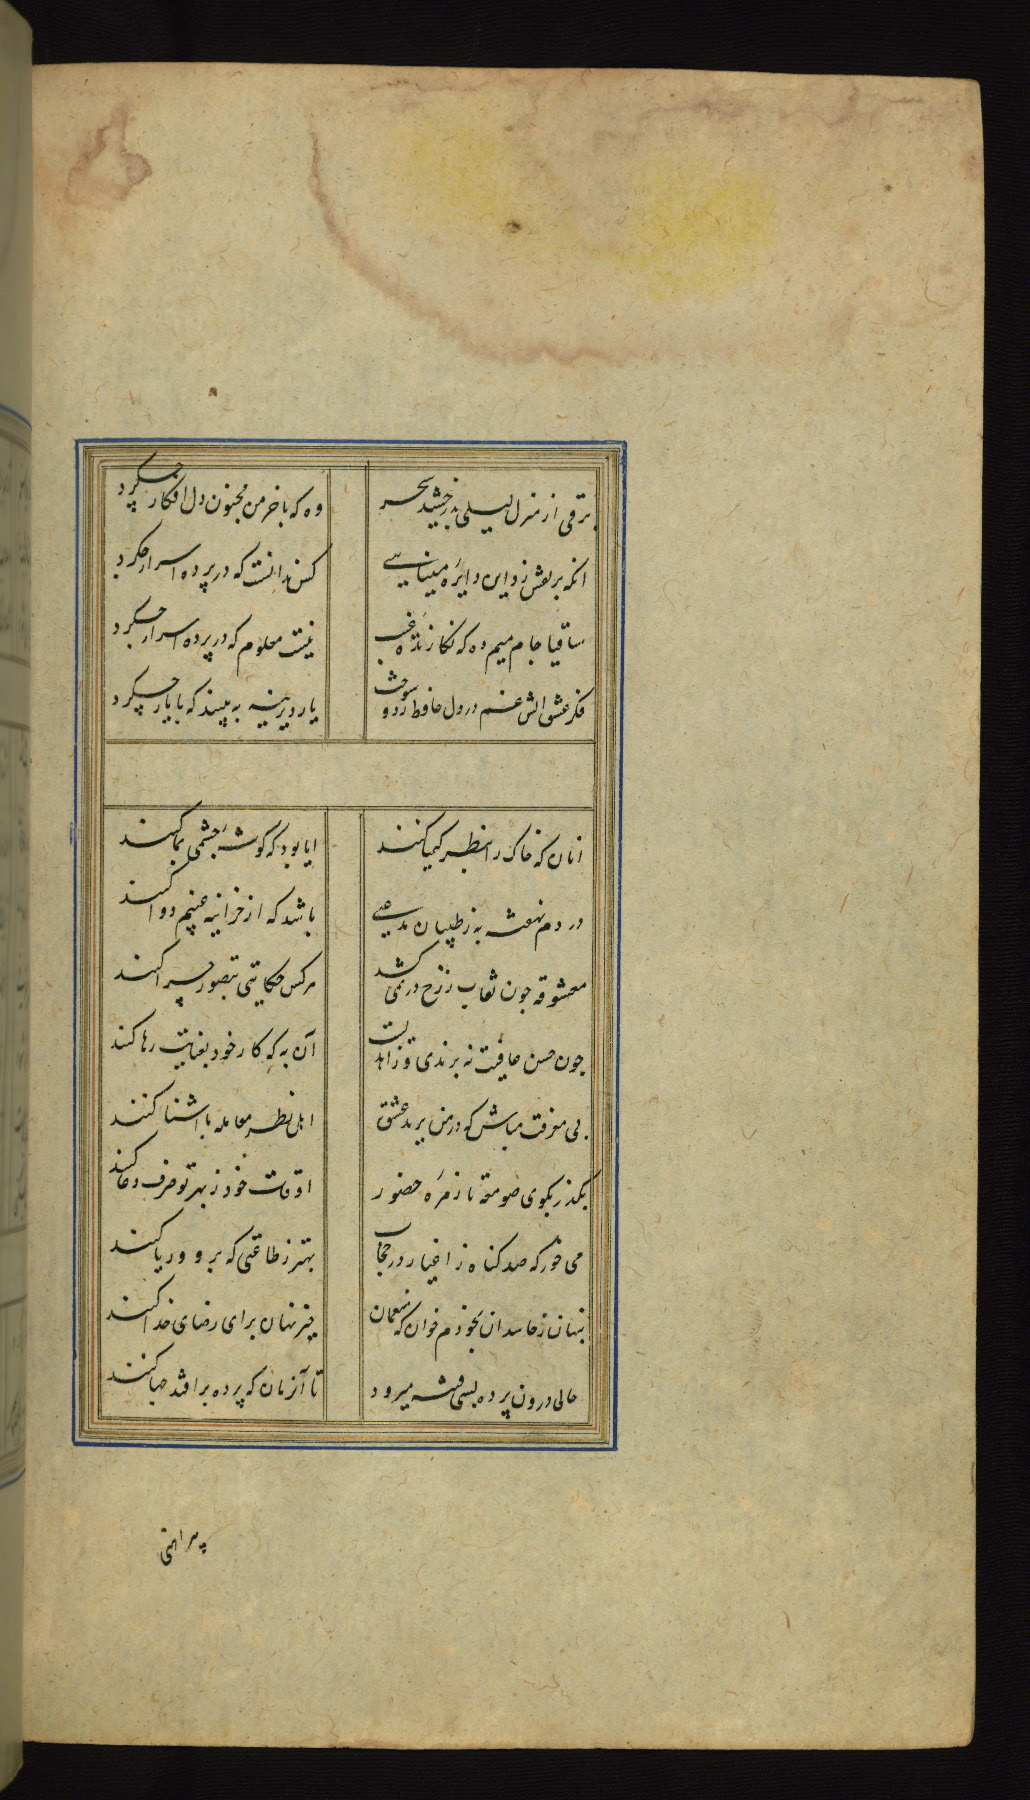 برقی از منزل لیلی بدرخشید سحر
وه که با خرمن مجنون دل افکار چکرد
انکه بر نقش زد این دایره مینایی
کس ندانست که در پرده اسرار چکرد
ساقیا جام میم ده که نکارنده غیب
نیست معلوم که در پرده اسرار چکرد
فکر عشق اتش غم در دل حافظ زد و سوخت
یار دیرینه به بینید که با یار چکرد
انان که خاک را بنظر کیمیا کنند
ایا بود که کوشه چشمی بما کنند
دردم نهفته به ز طبیبان مدعی
باشد که از خزانه غیبم دوا کنند
معشوقه چون نقاب ز رخ در نمی کشد
هر کس حکایتی بتصور چرا کنند
چون حسن عاقبت نه برندی و زاهدیست
آن به که کار خود بعنایت رها کنند
بی معرفت مباش که در من یزید عشق
اهل نظر معامله با اشنا کنند
بکذر بکوی صومعه تا زمره حضور
اوقات خود ز بهر تو صرف دعا کنند
می خور که صد کناه ز اغیار در حجاب
بهتر ز طاعتی که بروی و ریا کنند
پنهان ز حاسدان بخودم خوان که منعمان
خیر نهان برای رضای خدا کنند
حالی درون پرده بسی فتنه میرود
تا آن زمان که پرده برافتد چها کنند
پیراهنی